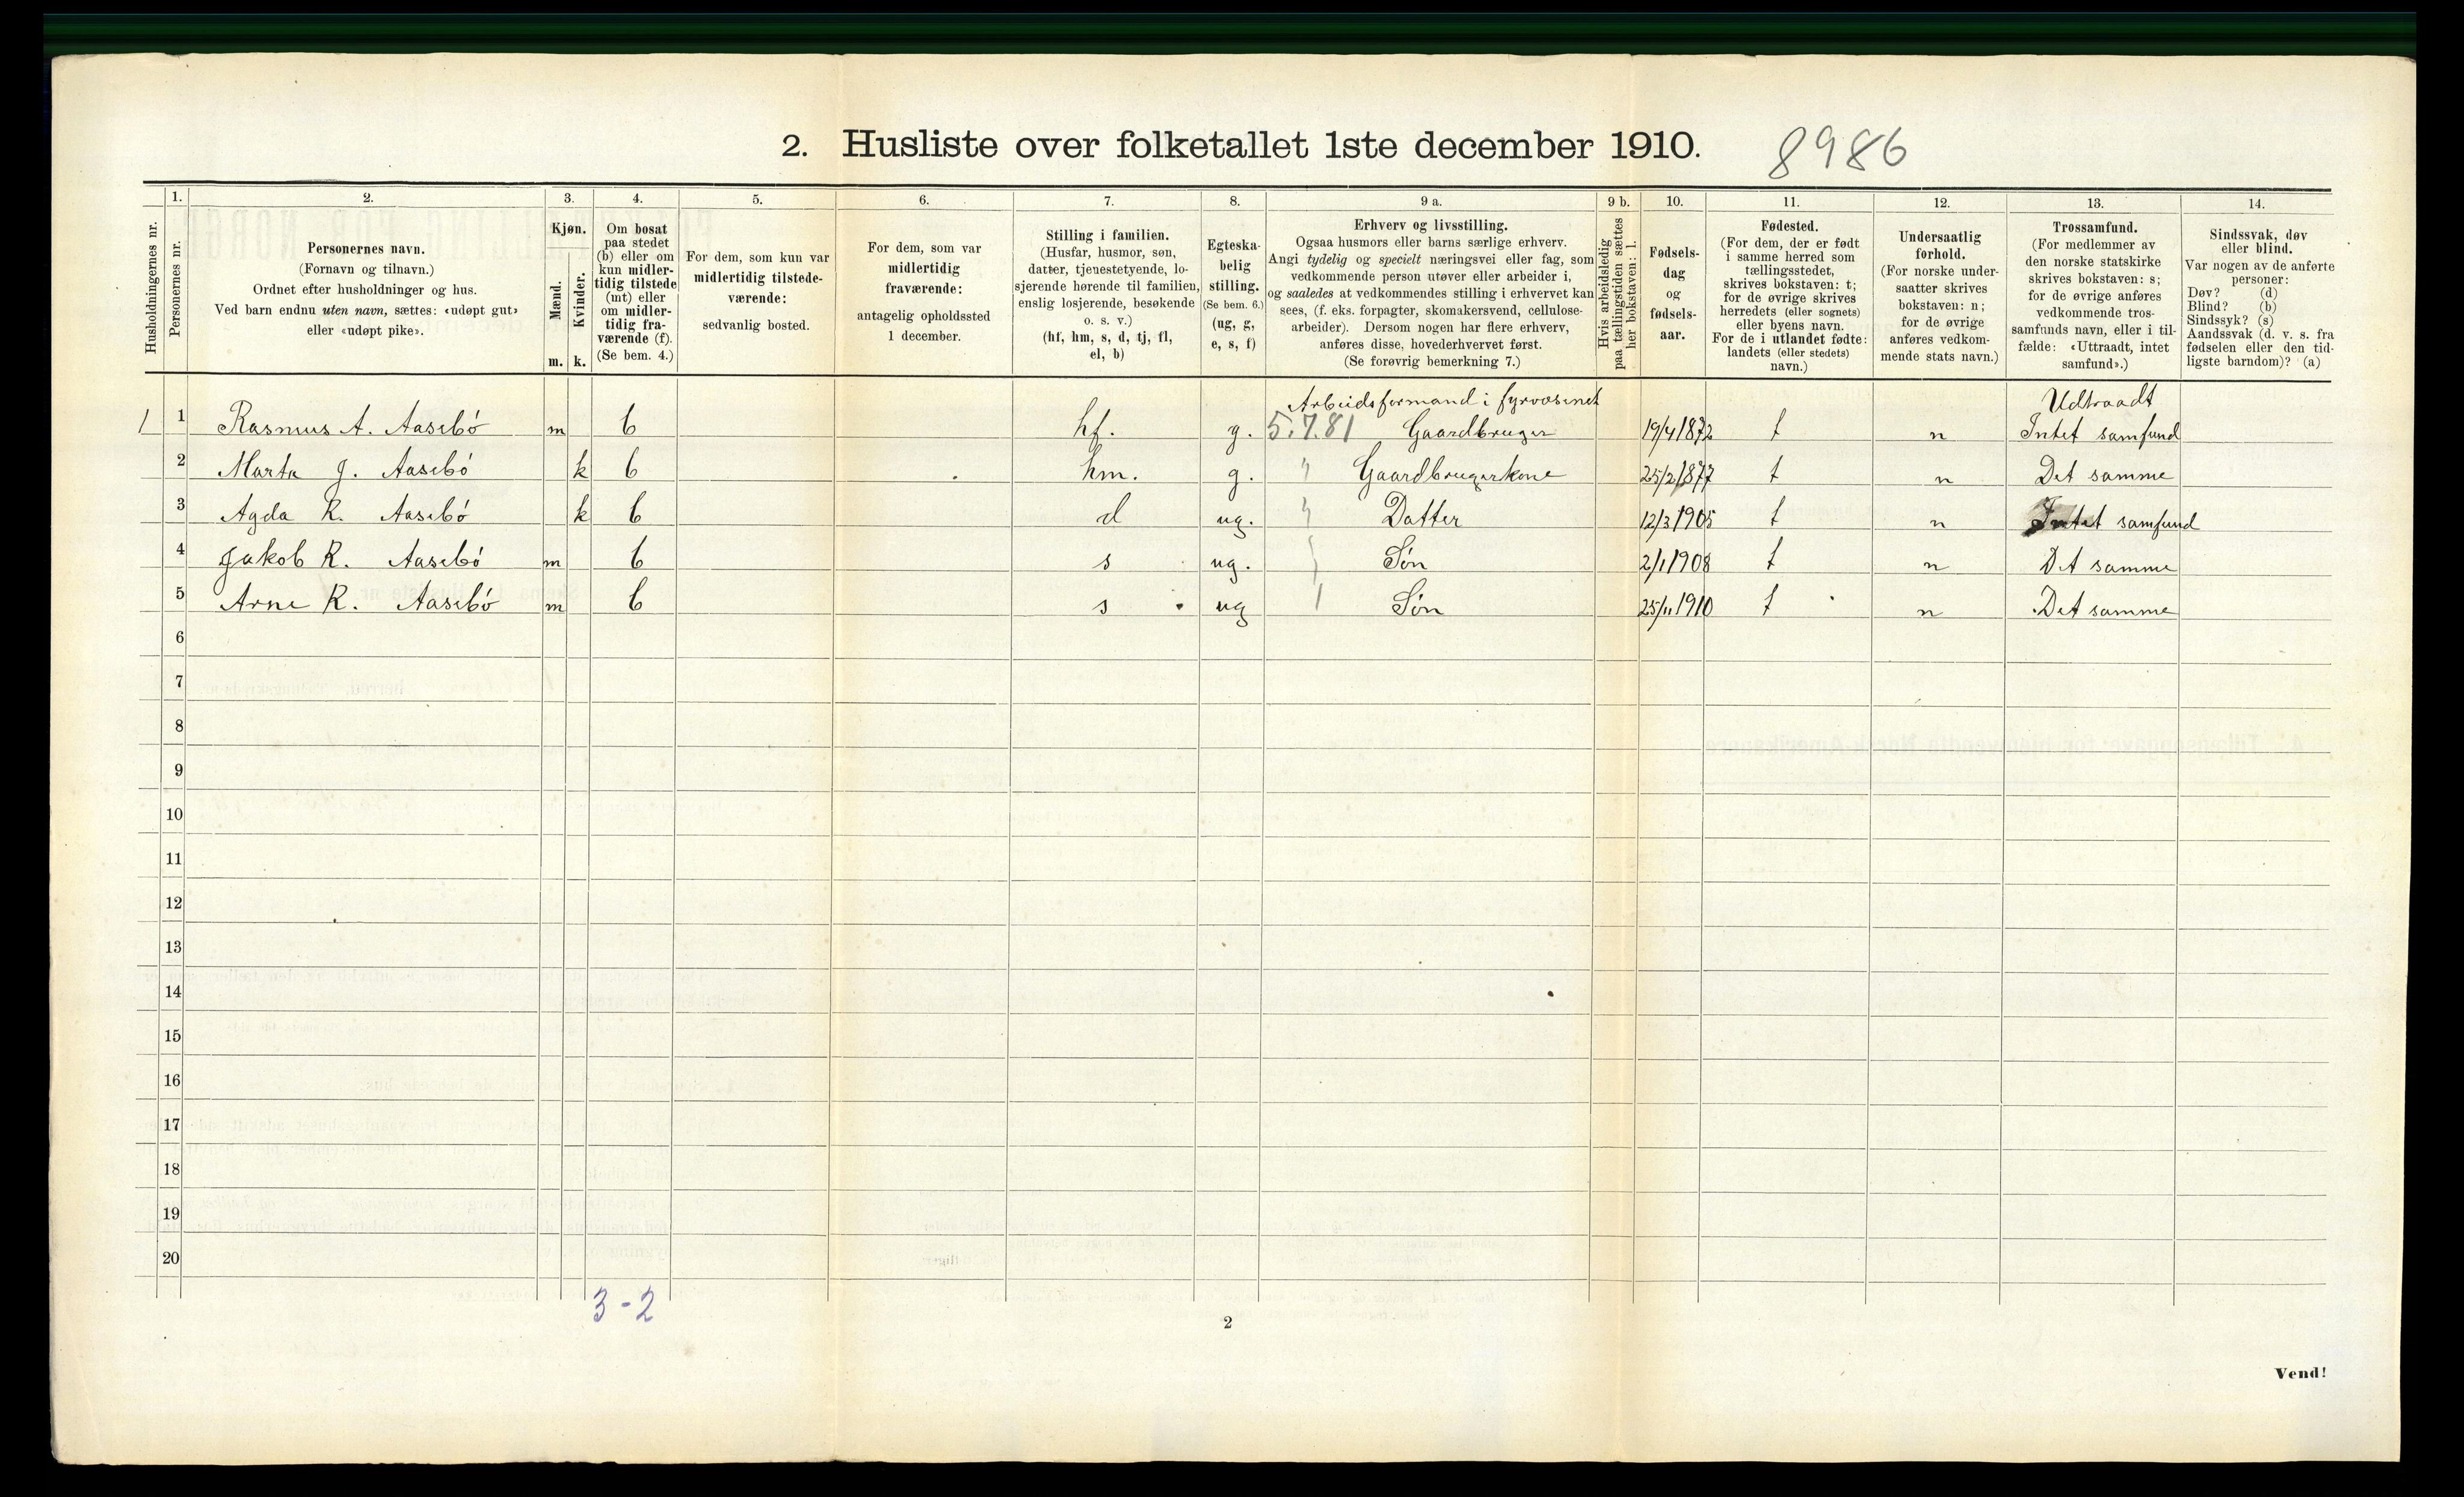 2. Husliste over folketallet 1ste december 1910. 8986
Husholdningernes nr.
1.
Personernes nr.
2.
Personernes navn.
(Fornavn og tilnavn.)
Ordnet efter husholdninger og hus.
Ved barn endnu uten navn, sættes: «udøpt gut»
eller «udøpt pike».
3.
Kjøn.
Mænd.
Kvinder.
m. k.
4.
Om bosat
paa stedet
(b) eller om
kun midler-
tidig tilstede
(mt) eller
om midler-
tidig fra-
værende (f).
(Se bem. 4.)
5.
For dem, som kun var
midlertidig tilstede-
værende:
sedvanlig bosted.
6.
For dem, som var
midlertidig
fraværende:
antagelig opholdssted
1 december.
7.
Stilling i familien.
(Husfar, husmor, søn,
datter, tjenestetyende, lo-
sjerende hørende til familien,
enslig losjerende, besøkende
o. s. v.)
(hf, hm, s, d, tj, fl,
el, b)
8.
Egteska-
belig
stilling.
(Se bem. 6.)
(ug, g,
e, s, f)
9 a.
Erhverv og livsstilling.
Ogsaa husmors eller barns særlige erhverv.
Angi tydelig og specielt næringsvei eller fag, som
vedkommende person utøver eller arbeider i,
og saaledes at vedkommendes stilling i erhvervet kan
sees, (f. eks. forpagter, skomakersvend, cellulose-
arbeider). Dersom nogen har flere erhverv,
anføres disse, hovederhvervet først.
(Se forøvrig bemerkning 7.)
9 b.
Hvis arbeidsledig
paa tællingstiden sættes
her bokstaven: l.
10.
Fødsels-
dag
og
fødsels-
aar.
11.
Fødested.
(For dem, der er født
i samme herred som
tællingsstedet,
skrives bokstaven: t;
for de øvrige skrives
herredets (eller sognets)
eller byens navn.
For de i utlandet fødte:
landets (eller stedets)
navn.)
12.
Undersaatlig
forhold.
(For norske under-
saatter skrives
bokstaven: n;
for de øvrige
anføres vedkom-
mende stats navn.)
13.
Trossamfund.
(For medlemmer av
den norske statskirke
skrives bokstaven: s;
for de øvrige anføres
vedkommende tros-
samfunds navn, eller i til-
fælde: «Uttraadt, intet
samfund».)
14.
Sindssvak, døv
eller blind.
Var nogen av de anførte
personer:
Døv? (d)
Blind? (b)
Sindssyk? (s)
Aandssvak (d. v. s. fra
fødselen eller den tid-
ligste barndom)? (a)
Arbeidsformand i fyrvæsenet Udtraadt
1 1 Rasmus A. Aasebó m b hf. g. 5.7.81 Gaardbruger 19/4 1872 t n Intet samfund
2 Marta J. Aasebó k b hm. g. " Gaardbrugerkone 25/2 1877 t n Det samme
3 Agda R. Aasebó k b d ug. " Datter 12/3 1905 t n Intet samfund
4 Jakob R. Aasebó m b s ug. Søn 2/1 1908 t n Det samme
5 Arne R. Aasebó m b s ug Søn 25/11 1910 t n Det samme
6
7
8
9
10
11
12
13
14
15
16
17
18
19
20
3-2
2
Vend!